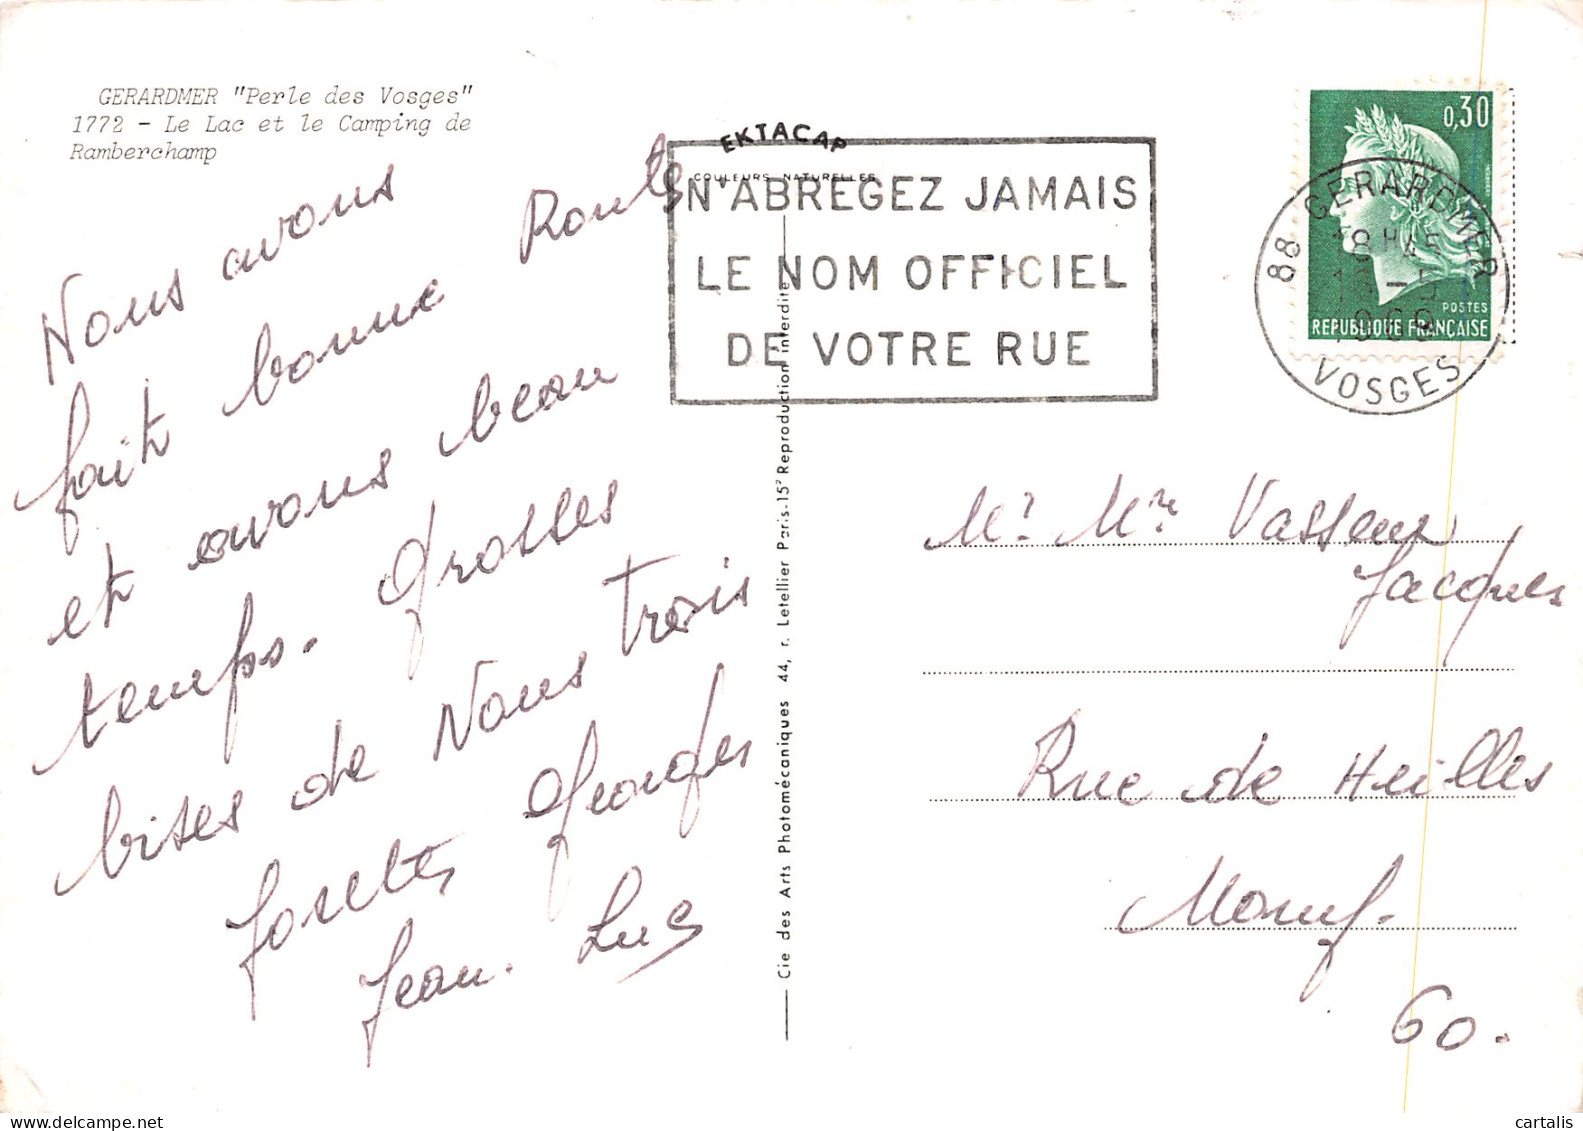 GERARDMER "Perle des Vosges"
1772 - Le Lac et le Camping de
Ramberchamp
Nous avons
fait bonne Route
et avons beau
temps. Grosses
bises de Nous trois
Josette Georges
Jean-Luc
EKTACAP
COULEURS NATURELLES
N'ABREGEZ JAMAIS
LE NOM OFFICIEL
DE VOTRE RUE
Cie des Arts Photomécaniques 44, r. Letellier Paris-15e Reproduction interdite
0,30
POSTES
REPUBLIQUE FRANÇAISE
88 GERARDMER
18H45
-5
1969
VOSGES
Mr Mme Vasseur
Jacques
Rue de Heilles
Mouy.
60.
cartalis